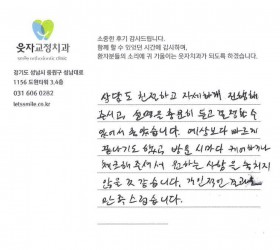 소중한 후기 감사드립니다.
함께 할 수 있었던 시간에 감사하며,
환자분들의 소리에 귀 기울이는 웃자치과가 되도록 하겠습니다.
웃자교정치과
경기도 성남시 중원구 성남대로
1156 도원타워 3,4층
031 606 0282
letssmile.co.kr
상담도 친절하고 자세하게 진행해
주시고, 설명을 충분히 듣고 결정할 수
있어서 좋았습니다. 예상보다 빠르게
끝나기도 하였고, 방문 시마다
체크해 주셔서 원하는 사항을 놓치지
않을 것 같습니다. 개인적인
만족스럽습니다.